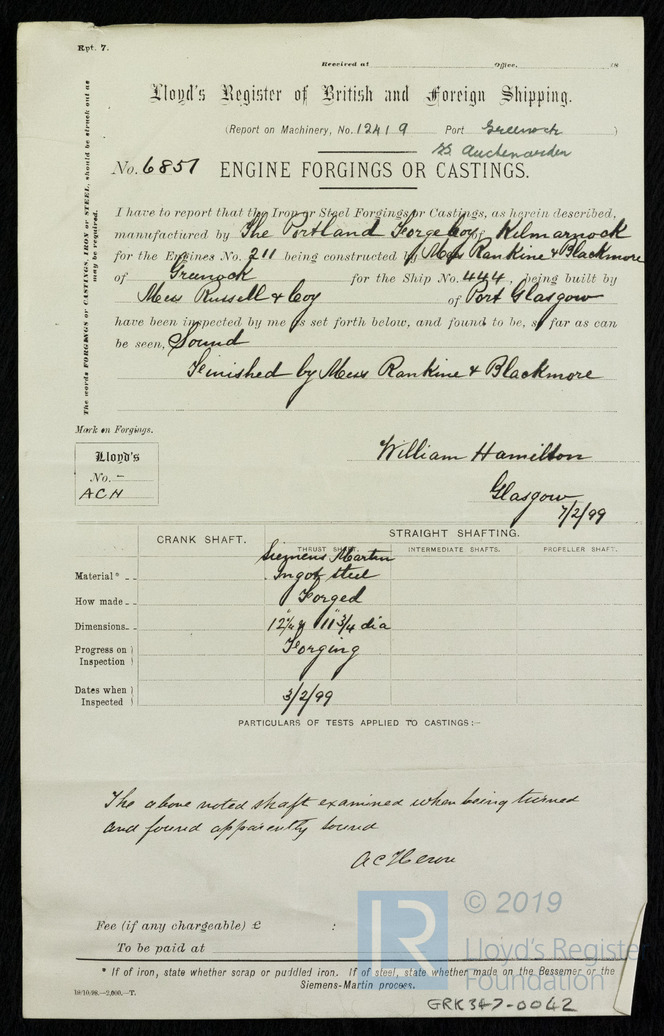 Rpt. 7.
Received at Office, 18
Lloyd's Register of British and Foreign Shipping.
(Report on Machinery, No. 12419 Port Greenock )
SS Auchenarden
No. 6851 ENGINE FORGINGS OR CASTINGS.
The words FORGINGS or CASTINGS, IRON or STEEL, should be struck out as
may be required.
I have to report that the Iron or Steel Forgings or Castings, as herein described,
manufactured by The Portland Forge Coy of Kilmarnock
for the Engines No. 211 being constructed by Mess Rankine & Blackmore
of Greenock for the Ship No. 444, being built by
Mess Russell & Coy of Port Glasgow
have been inspected by me as set forth below, and found to be, so far as can
be seen, Sound
Finished by Mess Rankine & Blackmore
Mark on Forgings.
Lloyd's
No. -
ACH
William Hamilton
Glasgow
7/2/99
CRANK SHAFT. STRAIGHT SHAFTING.
THRUST SHAFT. INTERMEDIATE SHAFTS. PROPELLER SHAFT.
Siemens Martin
Material* Ingot steel
How made Forged
Dimensions 12 1/4 & 11 3/4 dia
Progress on Inspection Forging
Dates when Inspected 3/2/99
PARTICULARS OF TESTS APPLIED TO CASTINGS:-
The above noted shaft examined when being turned
and found apparently sound
A C Heron
Fee (if any chargeable) £ :
To be paid at
* If of iron, state whether scrap or puddled iron. If of steel, state whether made on the Bessemer or the
Siemens-Martin process.
18/10/98.—2,000.—T.
GRK347-0042
LR
© 2019
Lloyd's Register
Foundation